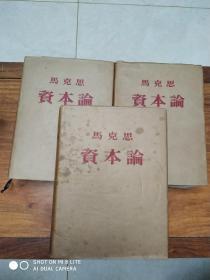 馬克思
資本論
馬克思
資本論
馬克思
資本論
SHOT ON MI 9 LITE
AI DUAL CAMERA